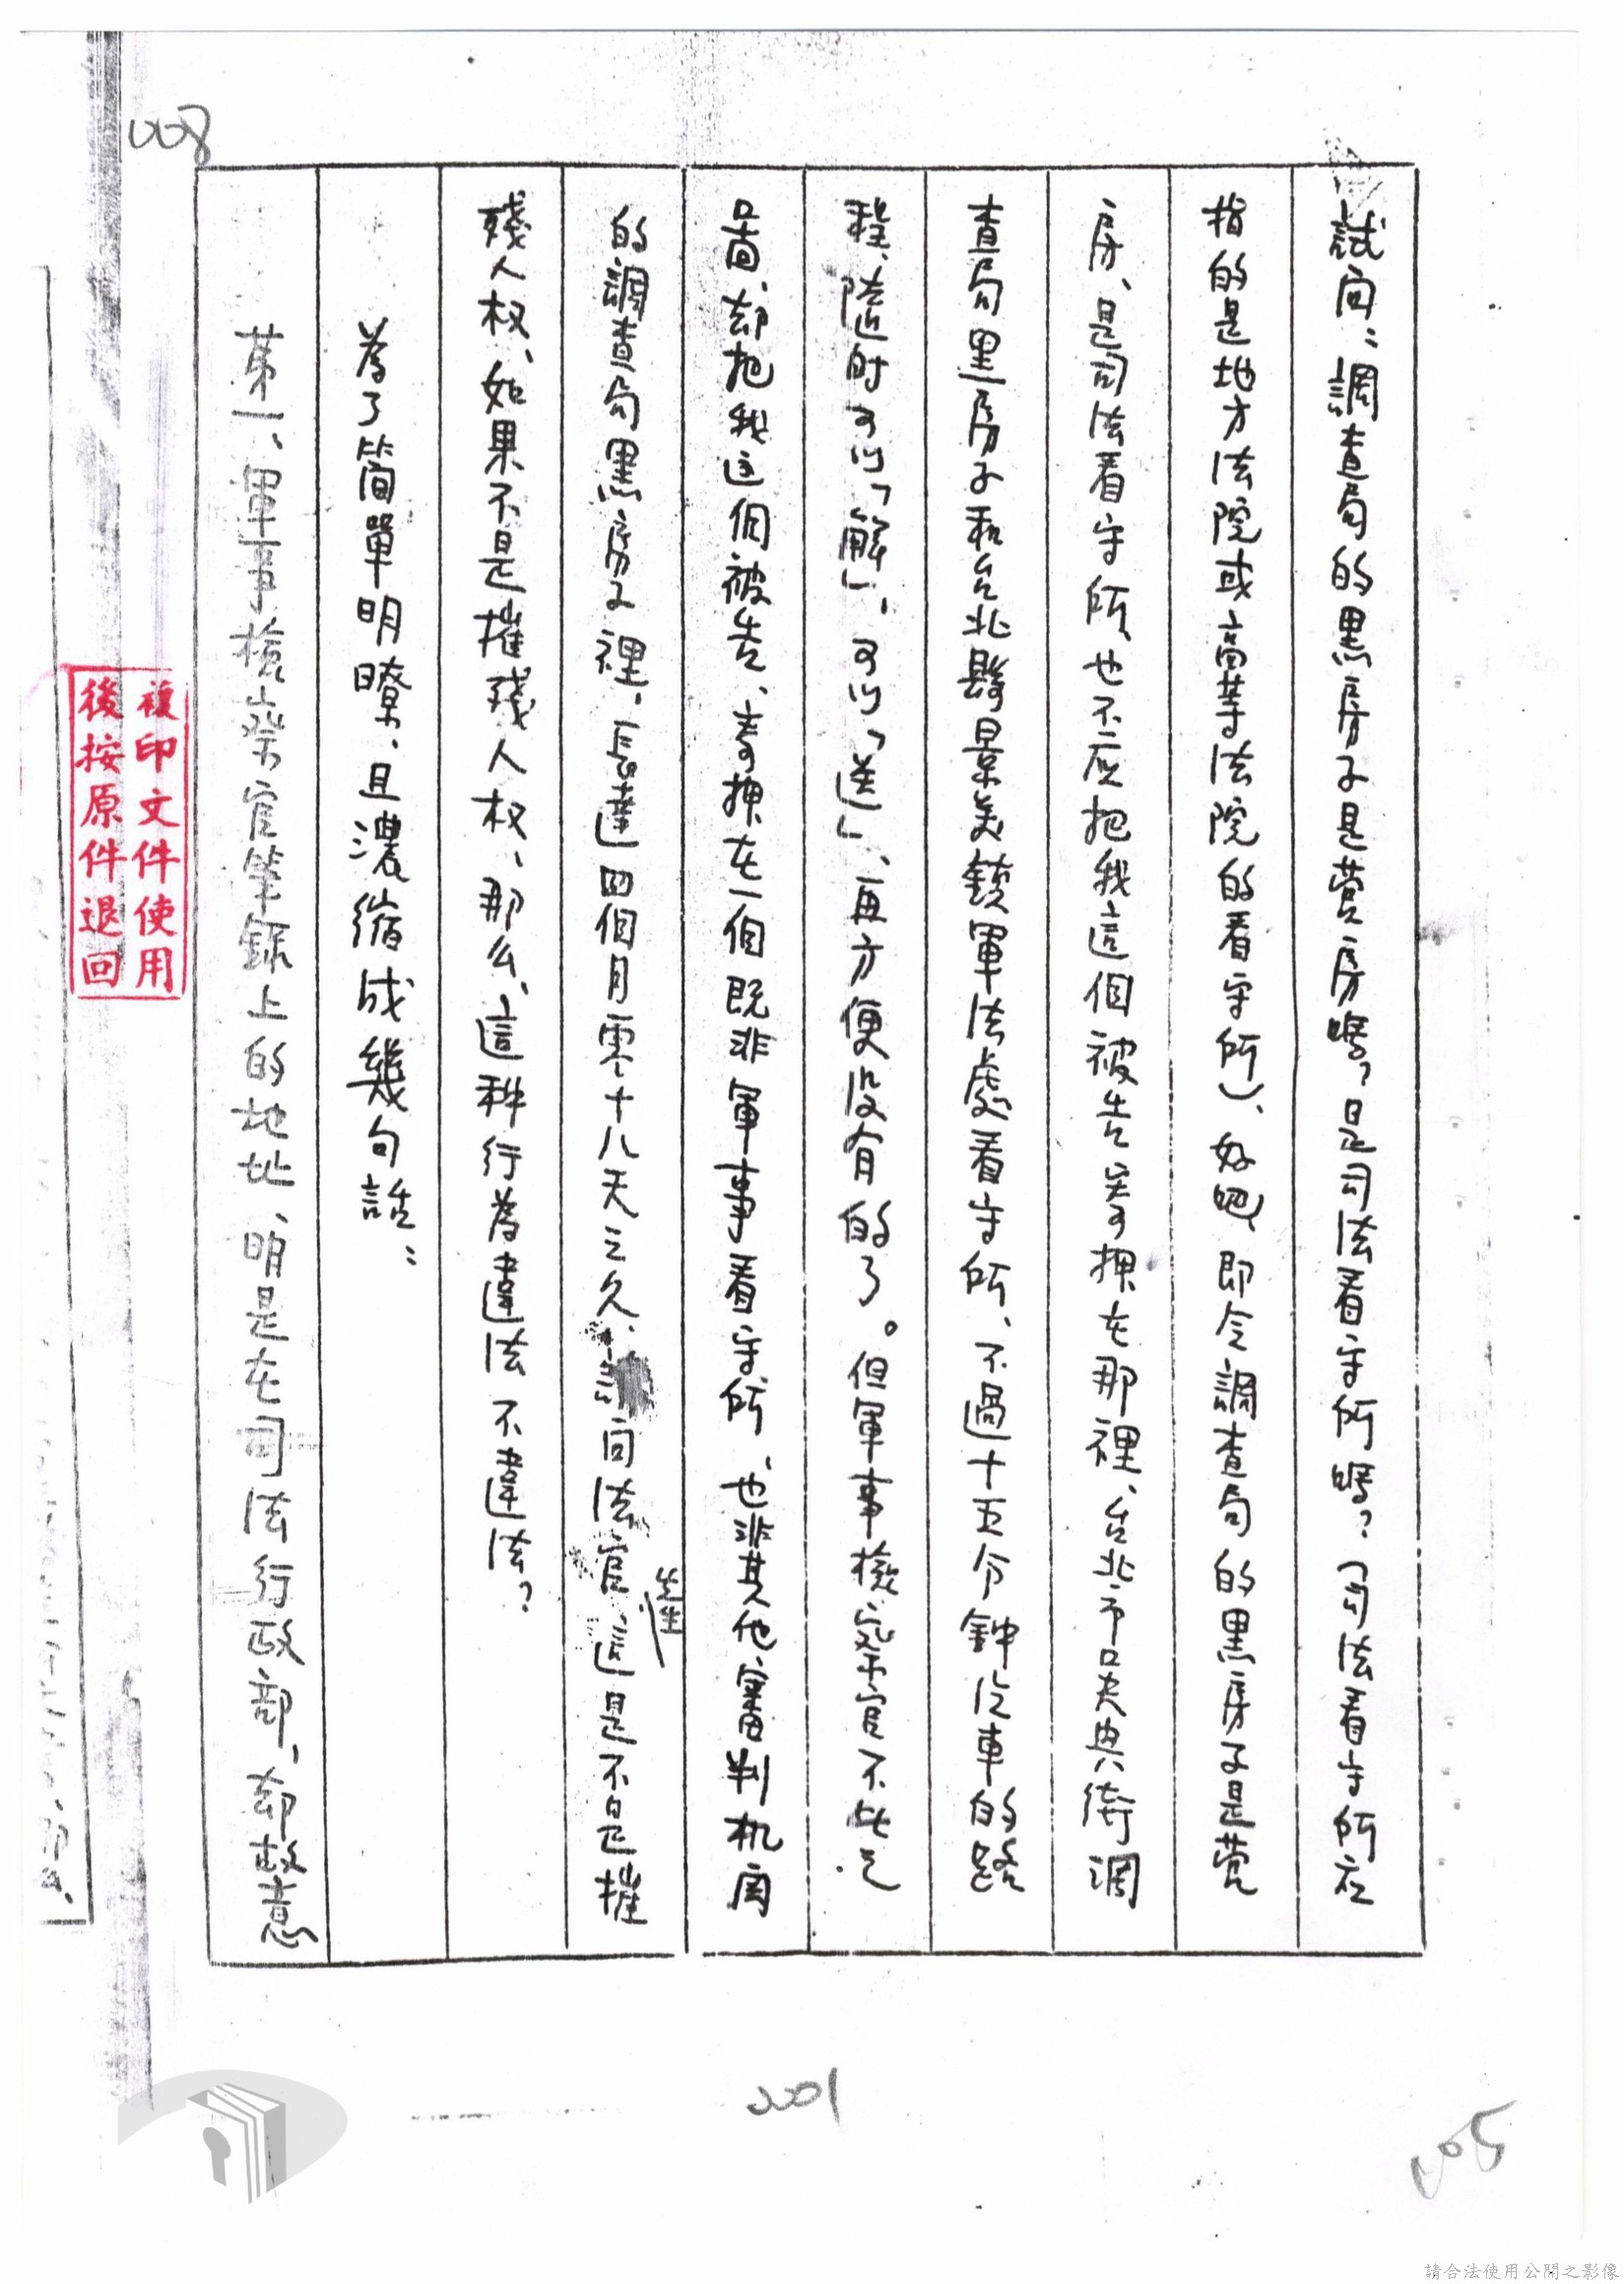 008
試问：調查局的黑房子是营房嗎？是司法看守所嗎？（司法看守所应
指的是地方法院或高等法院的看守所），好吧，即令調查局的黑房子是营
房、是司法看守所，也不应把我這個被告羈押在那裡，台北市吳兴街調
查局黑房子和台北縣景美鎮軍法處看守所，不過十五分鐘汽車的路
程，隨時可以「解」，可以「送」，再方便没有的了。但軍事檢察官不此之
啚，却把我这個被告，羈押在一個既非軍事看守所，也非其他審判机関
的調查局黑房子裡，長達四個月零十八天之久，问法官先生這是不是摧
殘人权，如果不是摧殘人权，那么，這种行為違法不違法？
為了简單明瞭，且濃缩成幾句話：
第一，軍事檢察官筆錄上的地址，明是在司法行政部，却故意
複印文件使用
後按原件退回
2001
005
請合法使用公開之影像